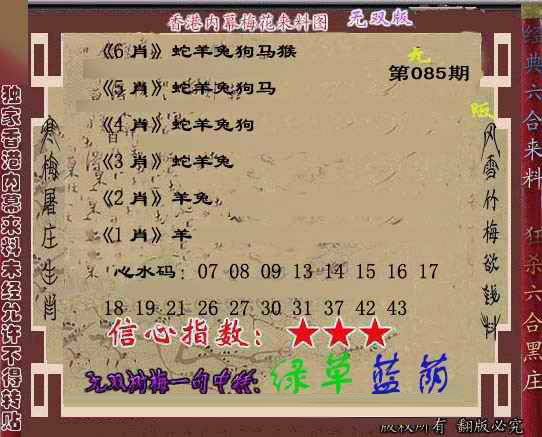 香港内幕梅花来料图 无双版
《6 肖》蛇羊兔狗马猴
无
第085期
《5 肖》蛇羊兔狗马
版
《4 肖》蛇羊兔狗
《3 肖》蛇羊兔
《2 肖》羊兔
《1 肖》羊
心水码：07 08 09 13 14 15 16 17
18 19 21 26 27 30 31 37 42 43
信心指数：★★★
无双剑梅一句中特：绿草蓝荫
版权所有 翻版必究
独家香港内幕来料未经允许不得转贴
寒梅屠庄生肖
风雪竹梅欲钱料
经典六合来料
狂杀六合黑庄